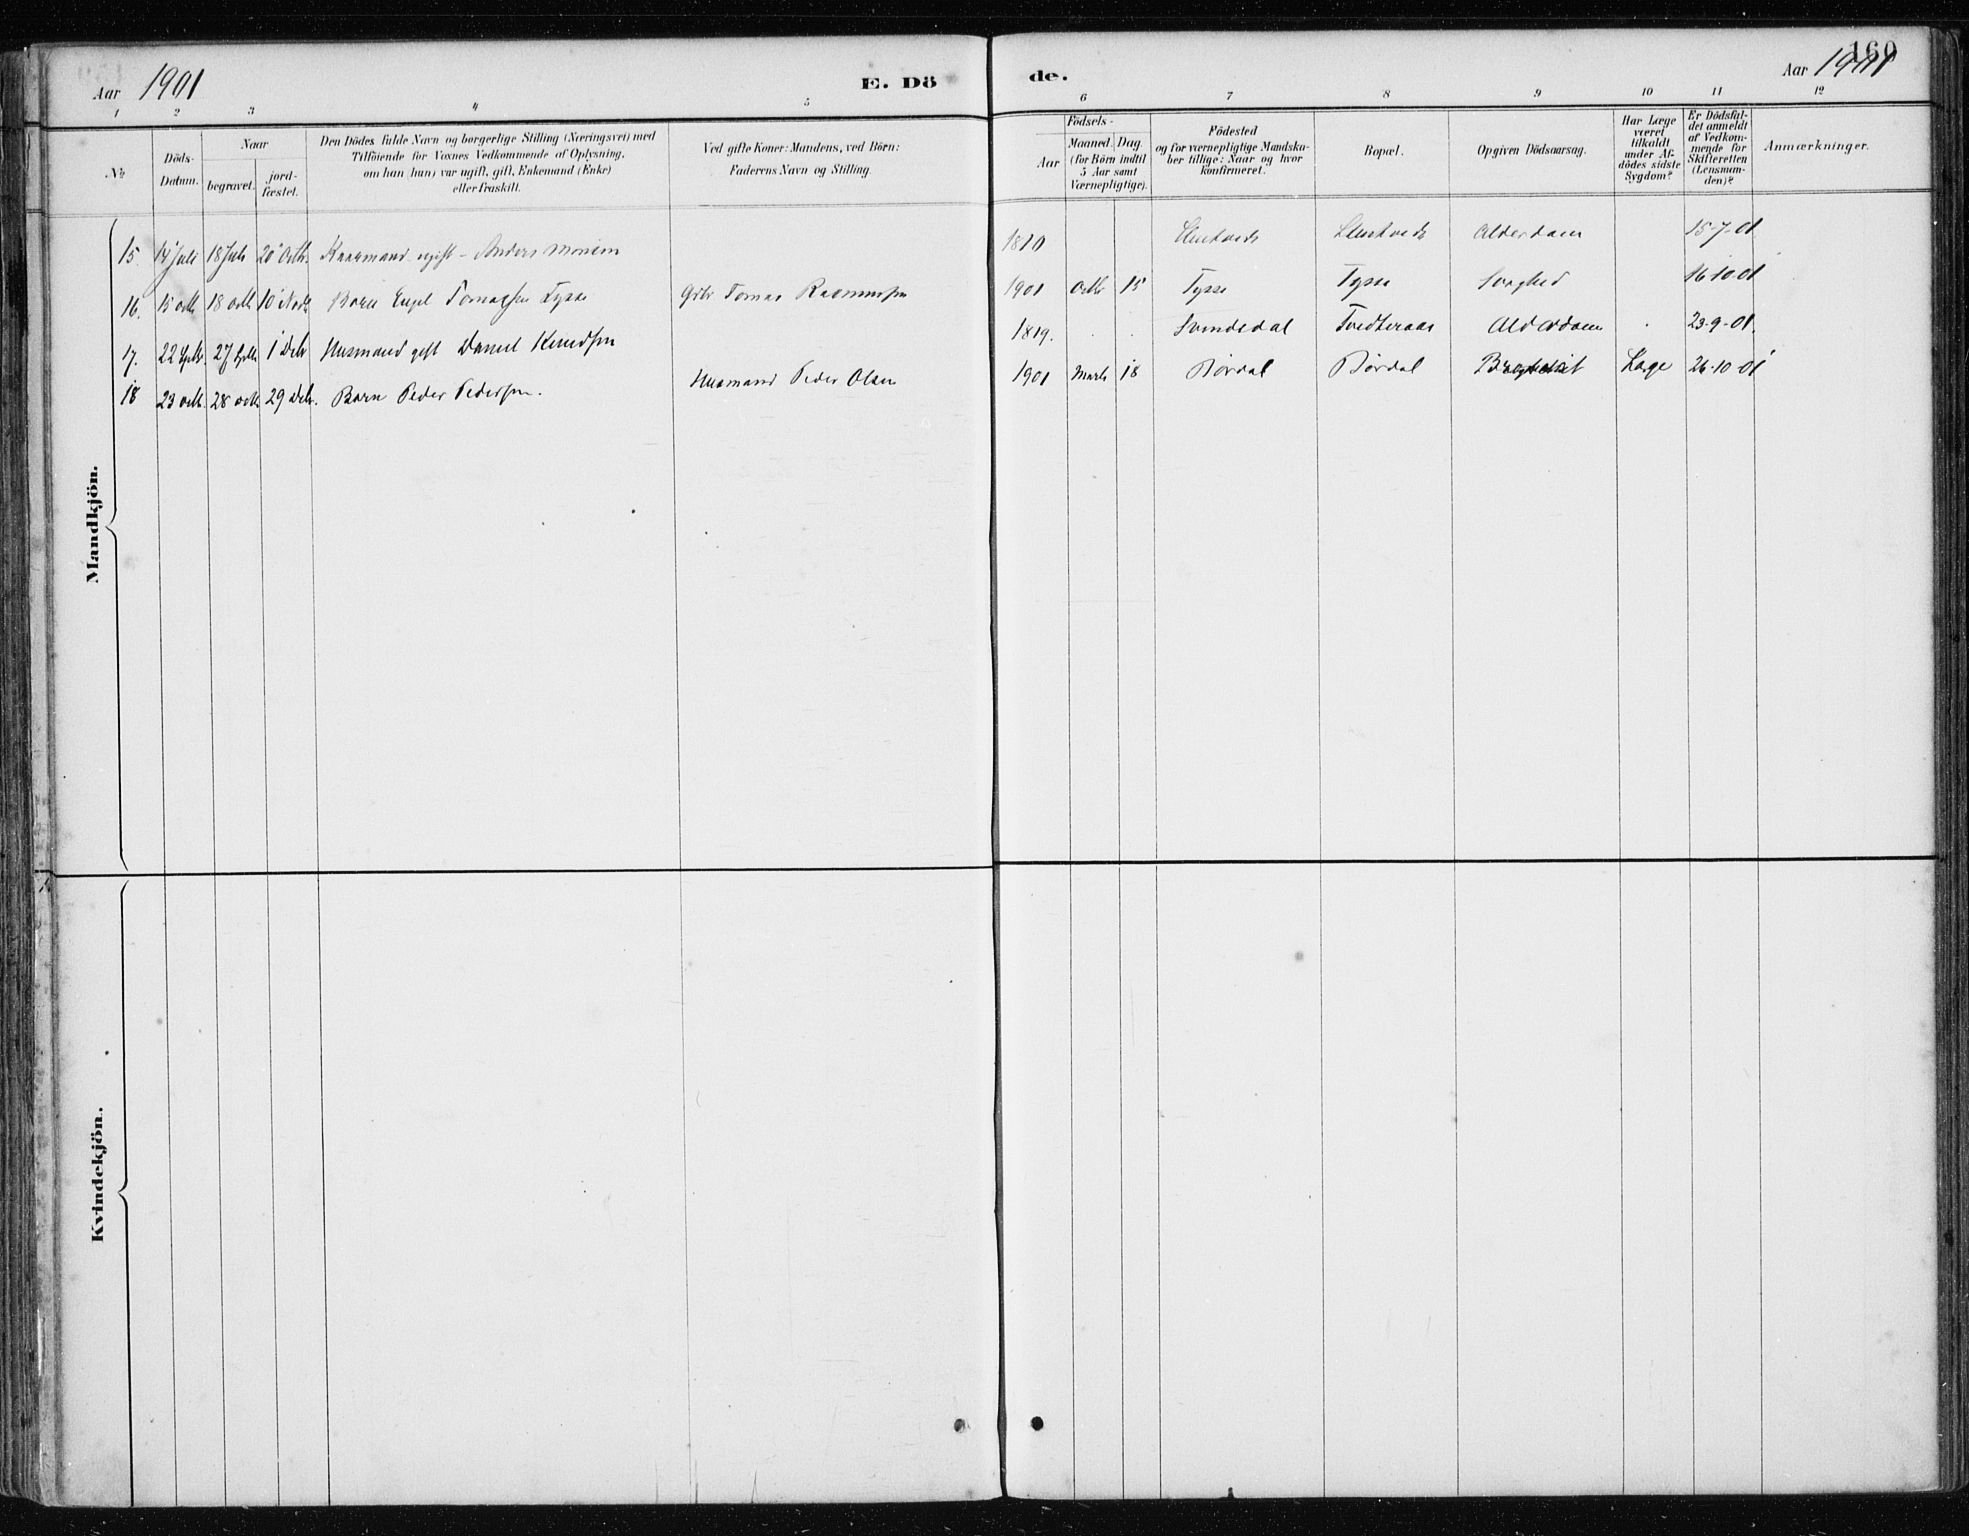 Aar 1901
E. Dö
de.
Aar 1901
160
1 2 3 4 5 6 7 8 9 10 11 12
№
Döds-
Datum.
Naar
begravet.
jord-
fæstet.
Den Dödes fulde Navn og borgerlige Stilling (Næringsvei) med
Tilföiende for Voxnes Vedkommende af Oplysning,
om han (hun) var ugift, gift, Enkemand (Enke)
eller fraskilt.
Ved gifte Koner: Mandens, ved Börn:
Faderens Navn og Stilling.
Födsels-
Aar
Maaned. Dag
(for Börn indtil
5 Aar samt
Værnepligtige).
Födested
og for værnepligtige Mandska-
ber tillige: Naar og hvor
konfirmeret.
Bopæl.
Opgiven Dödsaarsag.
Har Læge
været
tilkaldt
under Af-
dödes sidste
Sygdom?
Er Dödsfal-
det anmeldt
af Vedkom-
mende for
Skifteretten
(Lensman-
den)?
Anmærkninger.
Mandkjön.
15. 14 Juli 18 Juli 20 Octb. Kaarmand ugift - Anders 1810 Alderdom 15-7-01
16. 15 octb 18 octb 10 Novb Barn Engel Tomassen Tysse Gdbr Tomas Rasmussen 1901 Octbr 15 Tysse Tysse Svaghed 16-10-01
17. 22 Septbr. 27 Septb 1 Decbr Husmand gift Daniel Knudsen 1819. Svindedal Tvedteraas Alderdom 23-9-01.
18 23 octb. 28 octb 29 Decbr. Barn Peder Pedersen. Husmand Peder Olsen 1901 Marts 18 Børdal Børdal Læge 26-10-01
Kvindekjön.